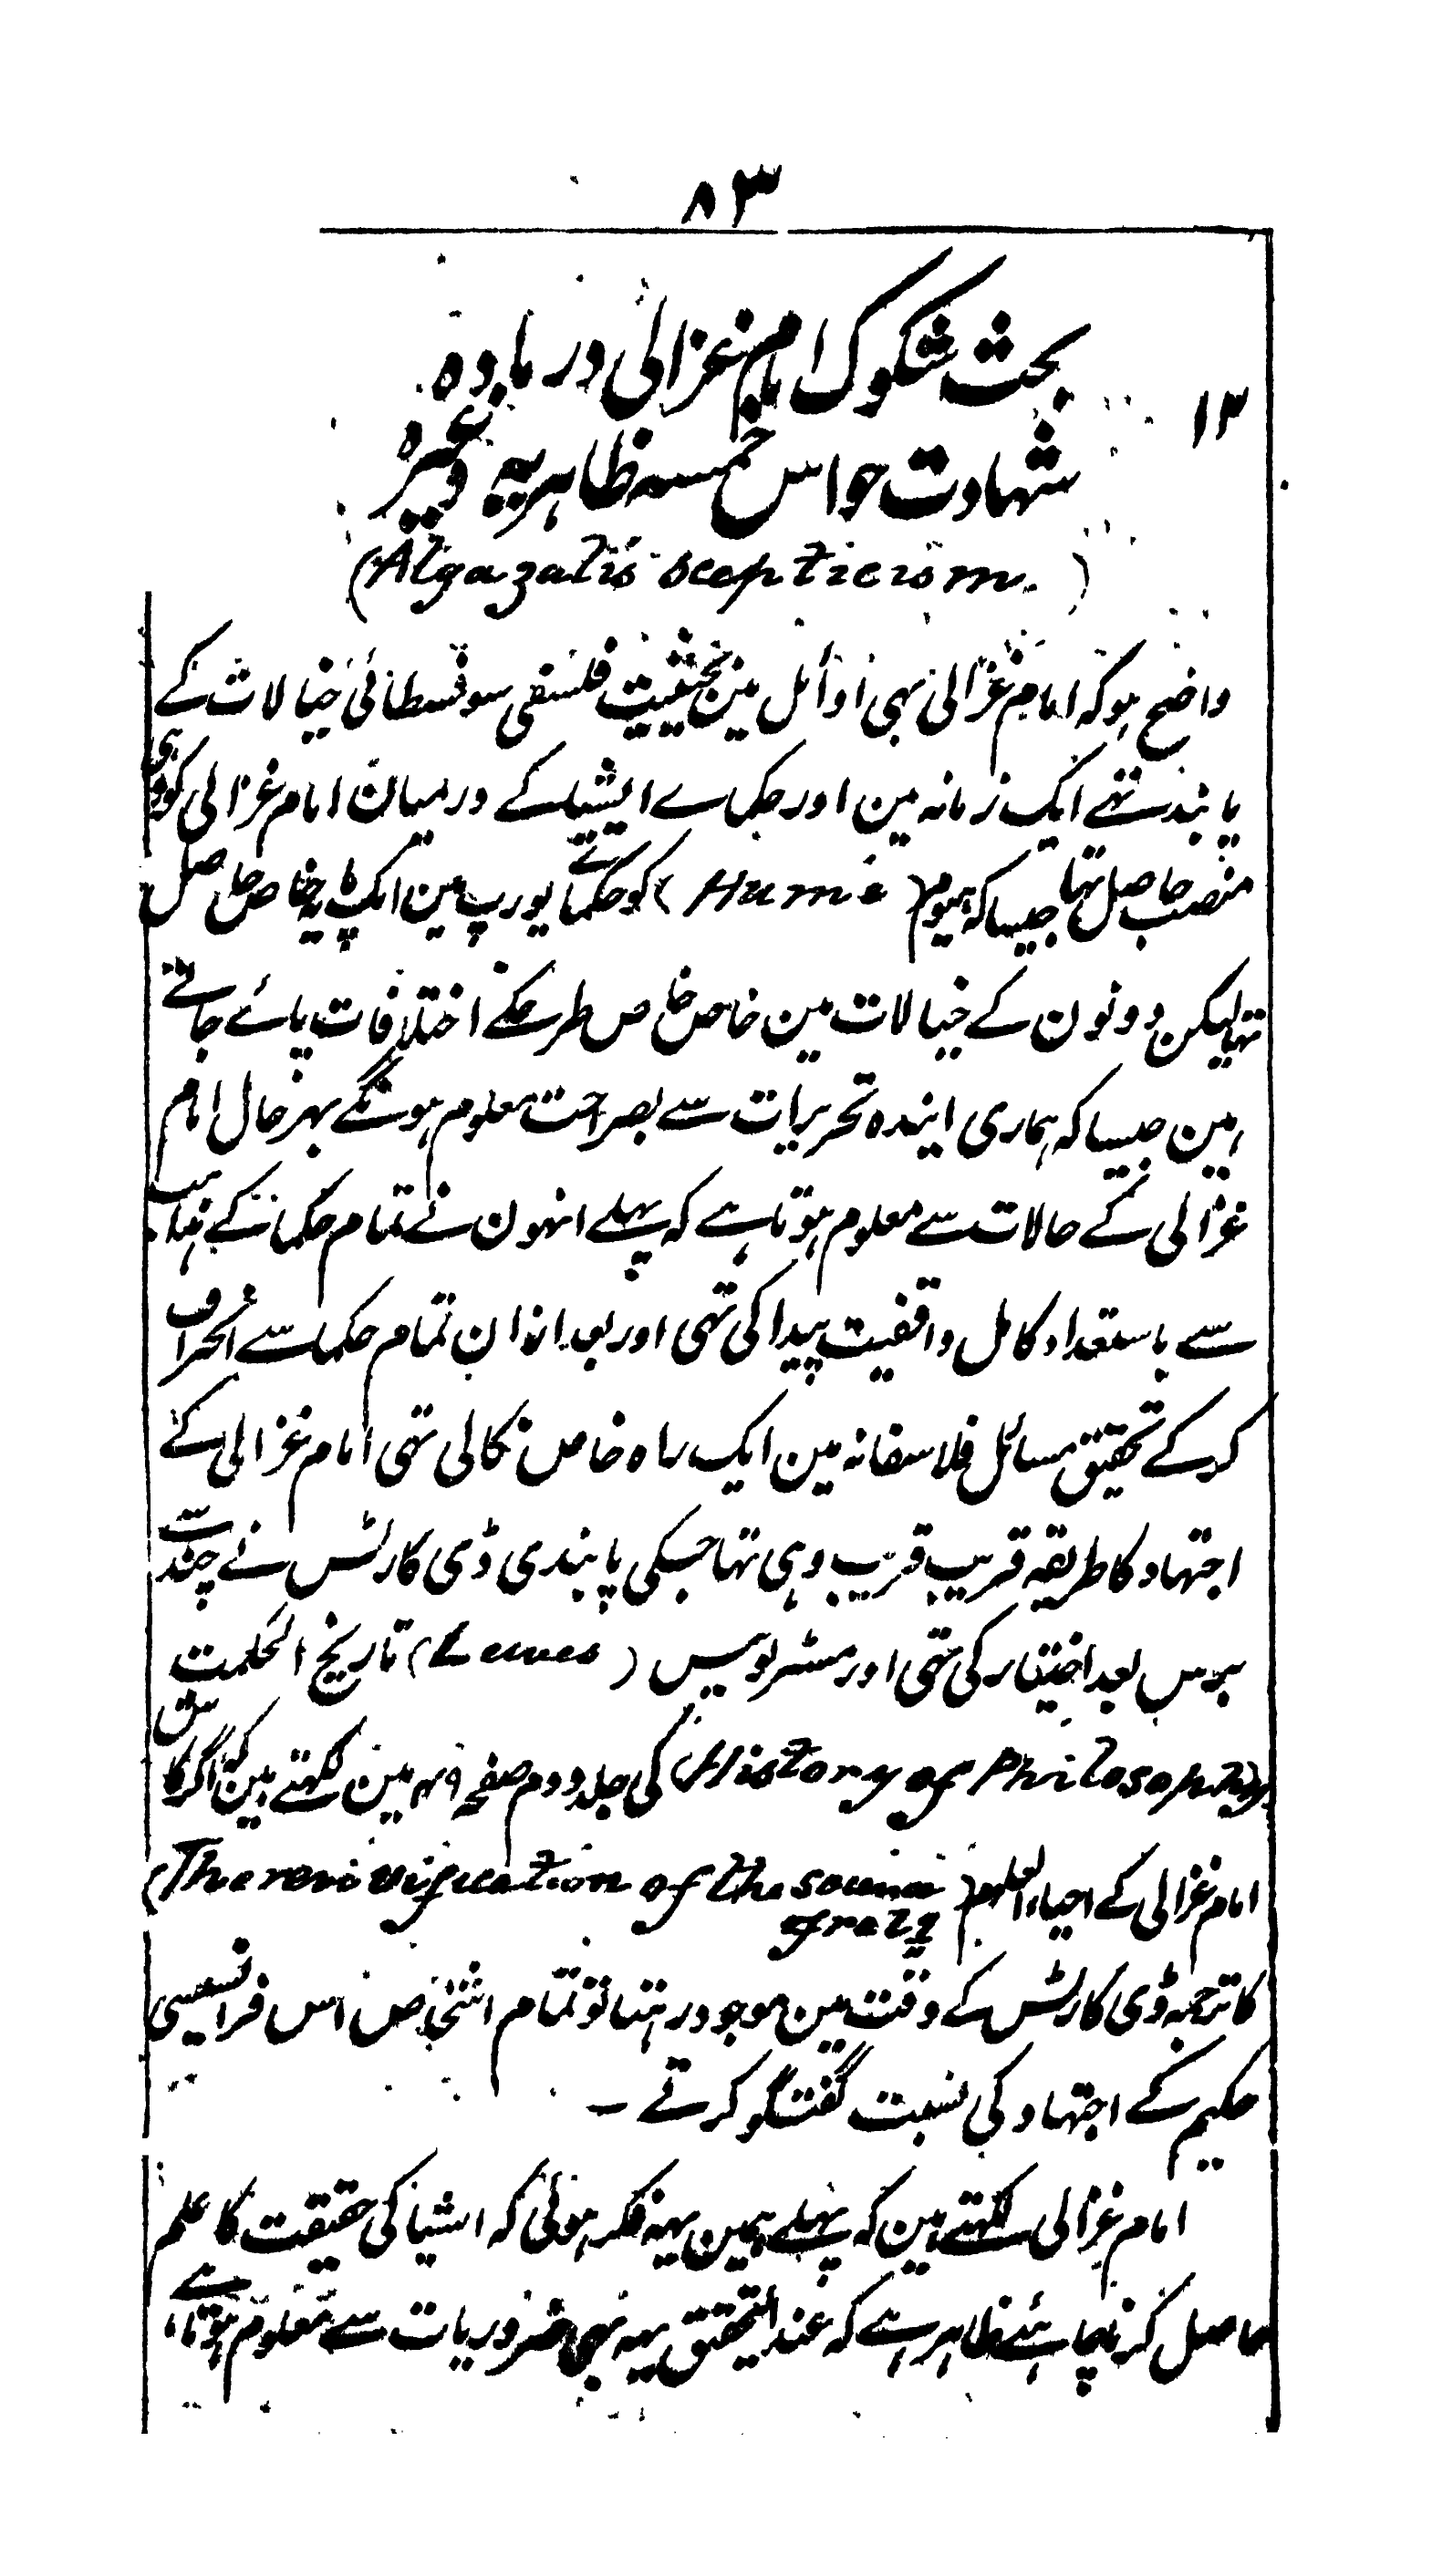 ۸۳
بحث شکوک امام غزالی در مادہ
۱۳
شہادت حواس خمسہ ظاہریہ وغیرہ
(Algazalis scepticism.)
واضح ہو کہ امام غزالی بہی اوائل مین بحیثیت فلسفی سوفسطائی خیالات کے
پابند تہے ایک زمانہ مین اور حکماے ایشیا کے درمیان امام غزالی کو وہی
منصب حاصل تہا جیسا کہ ہیوم (Hume) کو حکماے یورپ مین ایک پایہ خاص حاصل
تہا لیکن دونون کے خیالات مین خاص خاص طرحکے اختلافات پائے جاتے
ہین جیسا کہ ہماری ایندہ تحریرات سے بصراحت معلوم ہونگے بہرحال امام
غزالی کے حالات سے معلوم ہوتا ہے کہ پہلے انہون نے تمام حکما کے مذاہب
سے باستعداد کامل واقفیت پیدا کی تہی اور بعد ازان تمام حکما سے انحراف
کرکے تحقیق مسائل فلاسفانہ مین ایک راہ خاص نکالی تہی امام غزالی کے
اجتہاد کا طریقہ قریب قریب وہی تہا جسکی پابندی ڈی کارٹس نے چند
برس بعد اختیار کی تہی اور مسٹر لویس (Lewes) تاریخ الحکمت
(History of Philosophy) کی جلد دوم صفحہ ۴۹ مین لکہتے ہین کہ اگر کاش
امام غزالی کے احیاء العلوم (The revivification of the science of relg
کا ترجمہ ڈی کارٹس کے وقت مین موجود رہتا تو تمام اشخاص اس فرانسیسی
حکیم کے اجتہاد کی نسبت گفتگو کرتے ۔
امام غزالی لکہتے ہین کہ پہلے ہمین یہہ فکر ہوئی کہ اشیا کی حقیقت کا علم
حاصل کرنا چاہئے ظاہر ہے کہ عند التحقیق یہہ بہی ضروریات سے معلوم ہوتا ہے